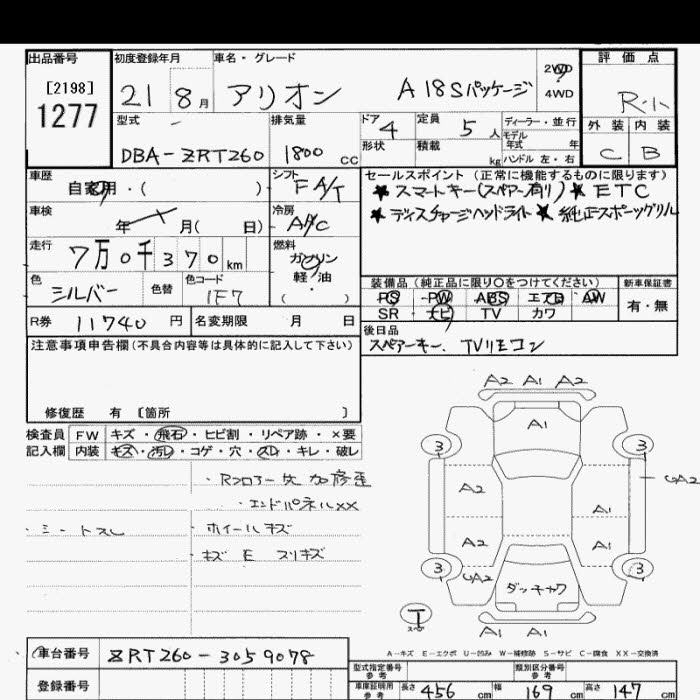 出品番号
[2198]
1277
初度登録年月
21 8月
車名・グレード
アリオン A18Sパッケージ
2WD
4WD
評価点
R.1
外装 内装
C B
型式
DBA-ZRT260
排気量
1800 cc
ドア
4
定員
5人
形状
積載
kg
ディーラー・並行
モデル
年式 年
ハンドル 左・右
車歴
自家用・( )
シフト
F A/T
車検
年 月( 日)
冷房
A/C
走行
7万0千370km
燃料
ガソリン
軽・油
( )
色
シルバー
色替
色コード
1F7
R券 11740円
名変期限 月 日
セールスポイント(正常に機能するものに限ります)
★スマートキー(スペアー有り) ★ETC
★ディスチャージヘッドライト ★純正スポーツグリル
装備品(純正品に限り○をつけてください)
PS PW ABS エアB AW
SR ナビ TV カワ
新車保証書
有・無
後日品
スペアーキー、TVリモコン
注意事項申告欄(不具合内容等は具体的に記入して下さい)
修復歴 有 〔箇所 〕
検査員
記入欄
FW キズ・飛石・ヒビ割・リペア跡・×要
内装 キズ・汚レ・コゲ・穴・スレ・キレ・破レ
・エンドパネルXX
・シートスレ
・ホイールキズ
・キズ E スリキズ
A2 A1 A2
A1
3 3
A2
UA2
A1
A2
A1
3 3
UA2
ダッチャク
T
スペア
A1 A1
A-キズ E-エクボ U-凹み W-補修跡 S-サビ C-腐食 XX-交換済
車台番号 ZRT260-3059078
登録番号
型式指定番号
参考
類別区分番号
参考
車庫証明用
参考
長さ 456 cm 幅 169 cm 高さ 147 cm